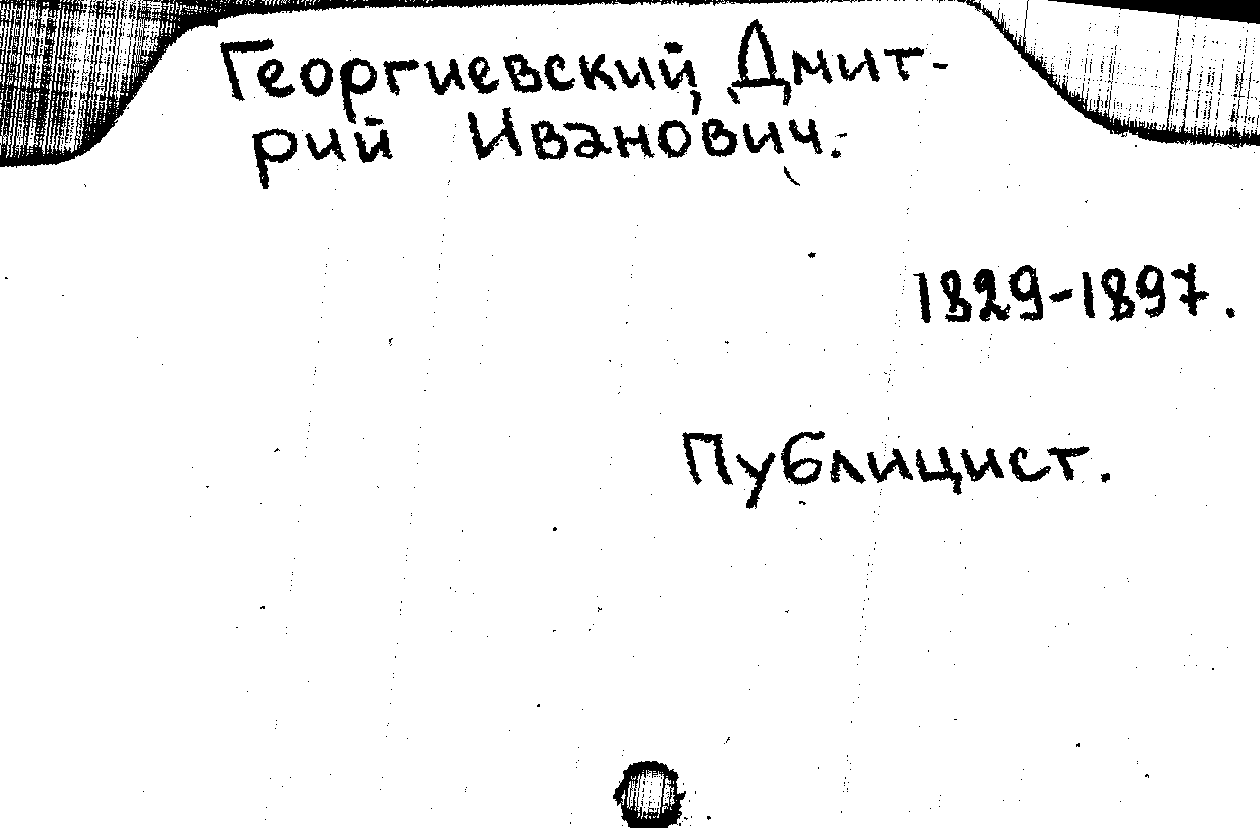 Георгиевский, Дмит-
рий Иванович.
1829-1897.
Публицист.